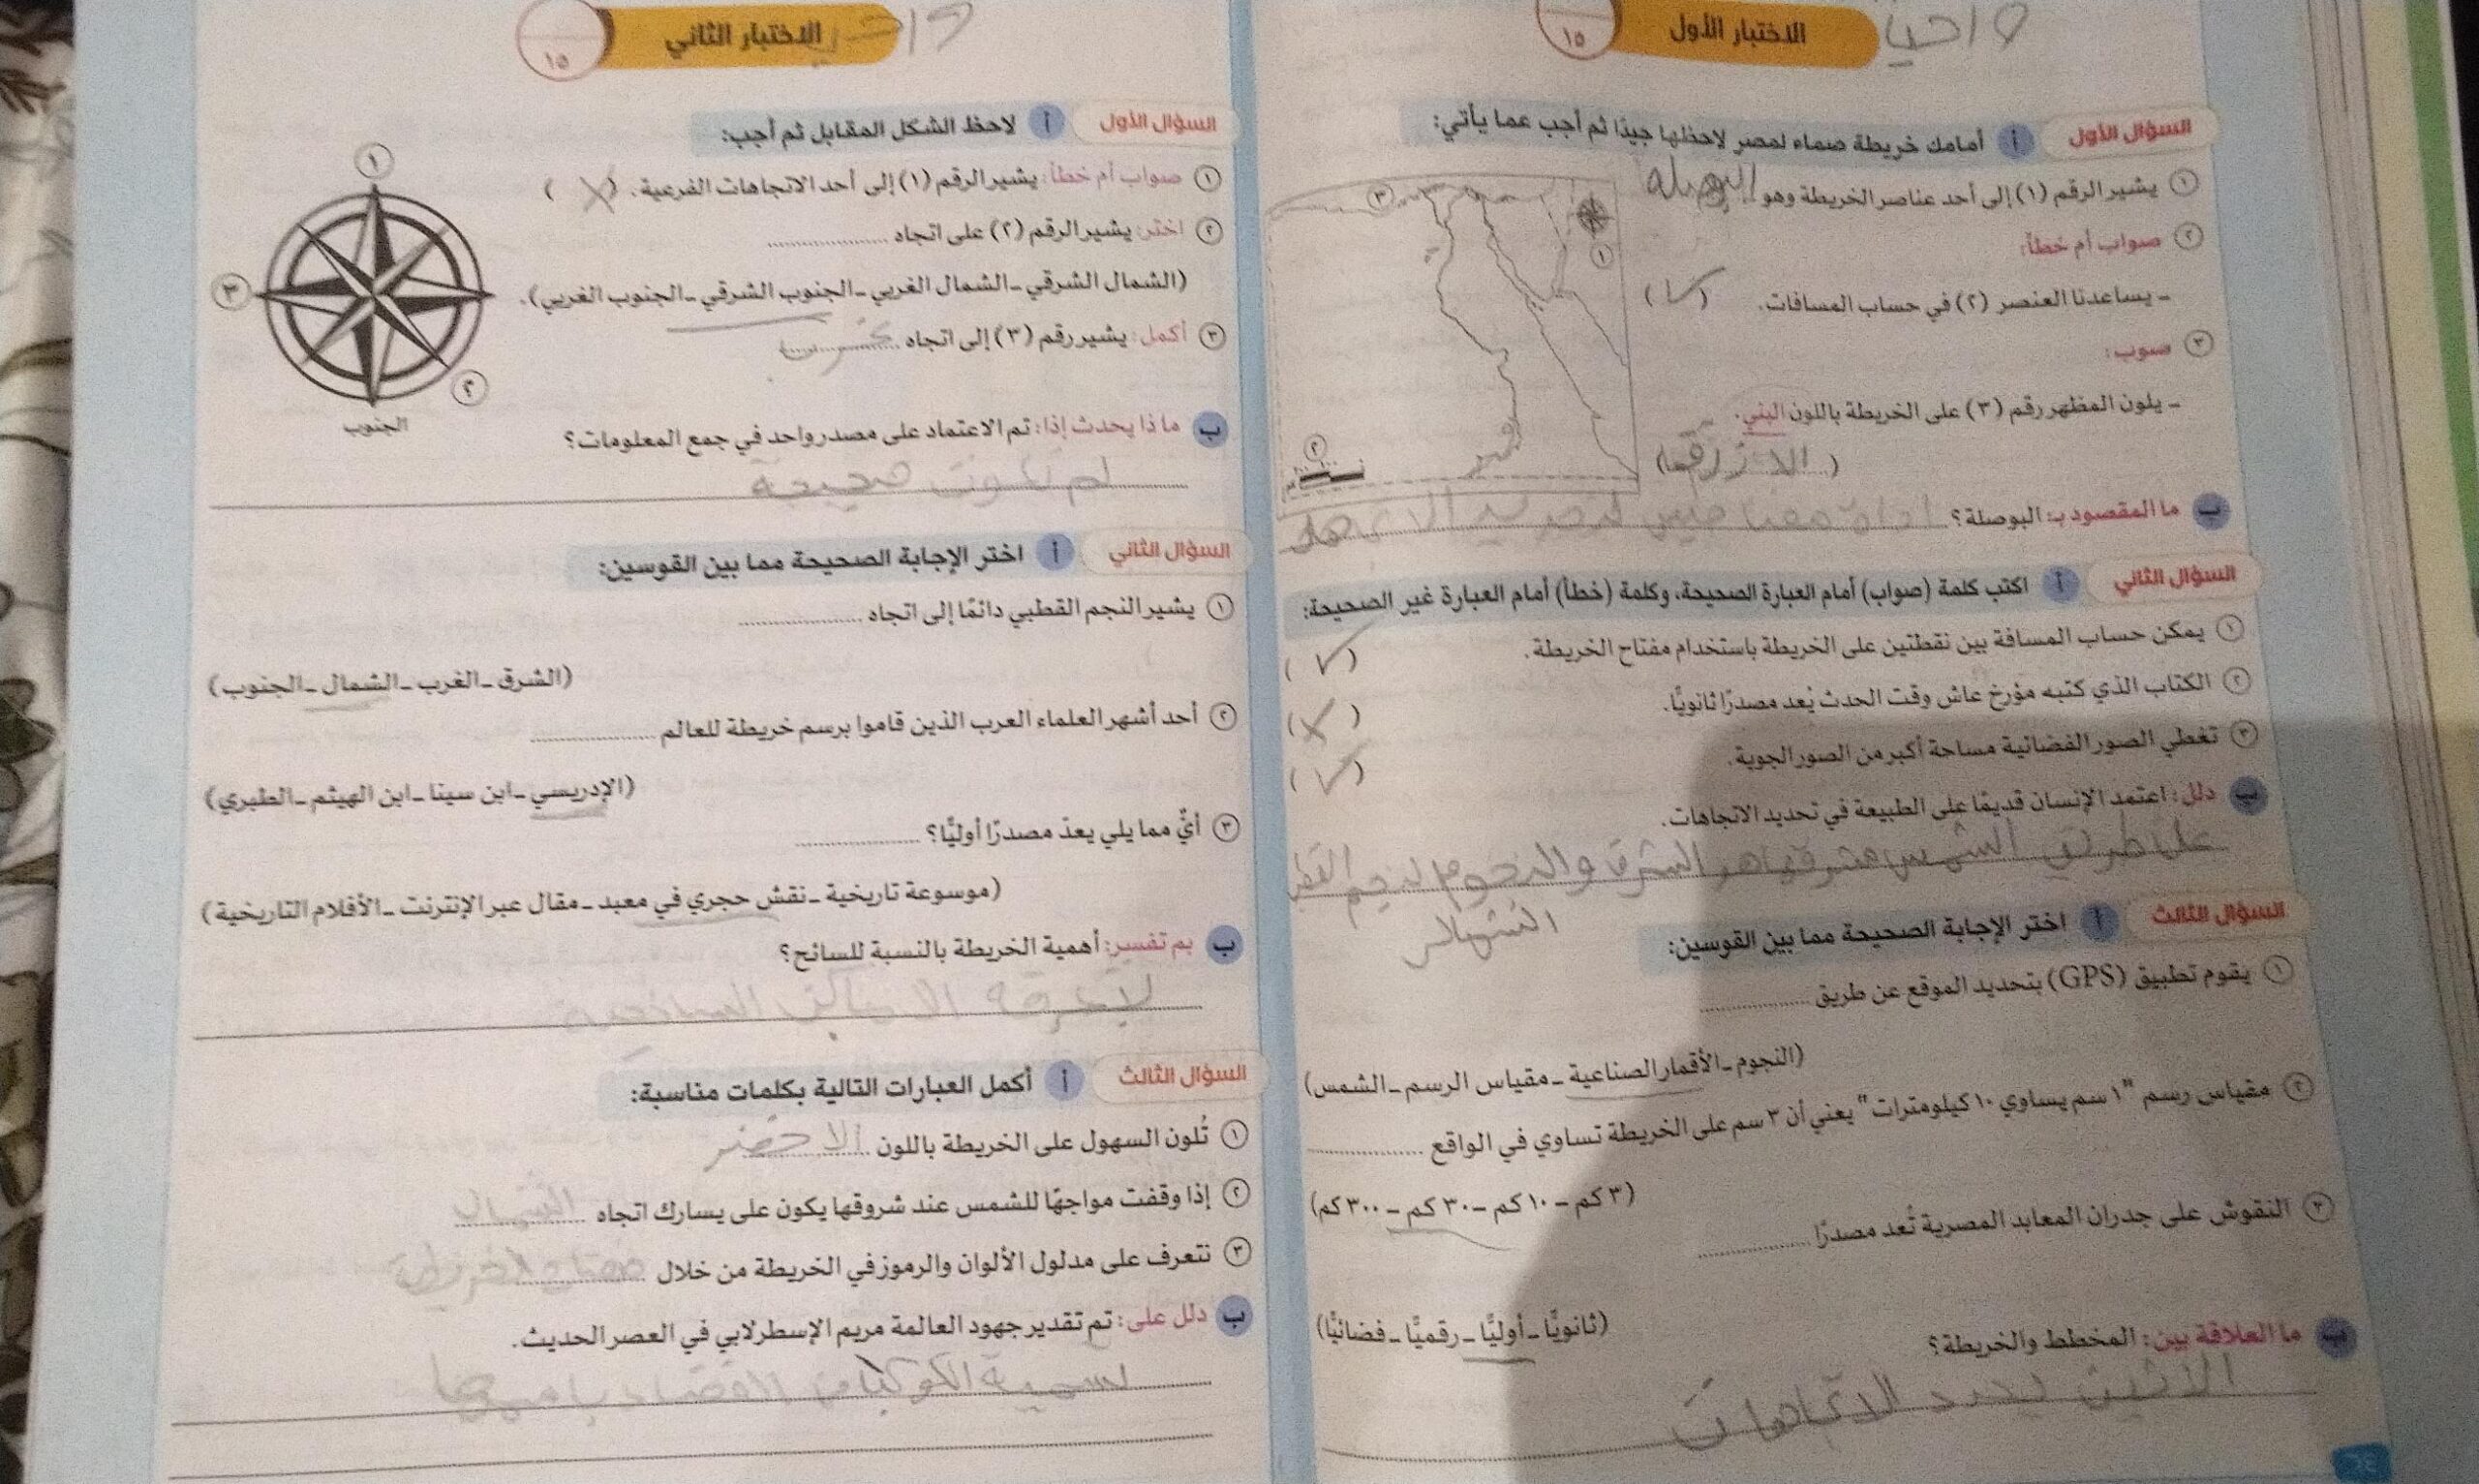 واحبا
الاختبار الأول
١٥
السؤال الأول
أ أمامك خريطة صماء لمصر لاحظها جيدًا ثم أجب عما يأتي:
١ يشير الرقم (١) إلى أحد عناصر الخريطة وهو البوصله
٢ صواب أم خطأ:
- يساعدنا العنصر (٢) في حساب المسافات. (✓)
٣ صوب:
- يلون المظهر رقم (٣) على الخريطة باللون البني.
(الازرق)
٣
١
٢
ب ما المقصود بـ: البوصلة؟ اداة لتحديد
السؤال الثاني
أ اكتب كلمة (صواب) أمام العبارة الصحيحة، وكلمة (خطأ) أمام العبارة غير الصحيحة:
١ يمكن حساب المسافة بين نقطتين على الخريطة باستخدام مفتاح الخريطة. (✓)
٢ الكتاب الذي كتبه مؤرخ عاش وقت الحدث يُعد مصدرًا ثانويًا. (X)
٣ تغطي الصور الفضائية مساحة أكبر من الصور الجوية. (✓)
ب دلل: اعتمد الإنسان قديمًا على الطبيعة في تحديد الاتجاهات.
على طريق الشمس الشرق والنجوم
السؤال الثالث
أ اختر الإجابة الصحيحة مما بين القوسين:
١ يقوم تطبيق (GPS) بتحديد الموقع عن طريق ..........
(النجوم - الأقمار الصناعية - مقياس الرسم - الشمس)
٢ مقياس رسم "١ سم يساوي ١٠ كيلومترات" يعني أن ٣ سم على الخريطة تساوي في الواقع ..........
(٣ كم - ١٠ كم - ٣٠ كم - ٣٠٠ كم)
٣ النقوش على جدران المعابد المصرية تُعد مصدرًا ..........
(ثانويًا - أوليًّا - رقميًّا - فضائيًّا)
ب ما العلاقة بين: المخطط والخريطة؟
الاثنين يحدد الاتجاهات
الاختبار الثاني
١٥
السؤال الأول
أ لاحظ الشكل المقابل ثم أجب:
١ صواب أم خطأ: يشير الرقم (١) إلى أحد الاتجاهات الفرعية. (X)
٢ اختر: يشير الرقم (٢) على اتجاه ..........
(الشمال الشرقي - الشمال الغربي - الجنوب الشرقي - الجنوب الغربي).
٣ أكمل: يشير رقم (٣) إلى اتجاه غرب
١
٣
٢
الجنوب
ب ماذا يحدث إذا: تم الاعتماد على مصدر واحد في جمع المعلومات؟
لم تكون صحيحة
السؤال الثاني
أ اختر الإجابة الصحيحة مما بين القوسين:
١ يشير النجم القطبي دائمًا إلى اتجاه ..........
(الشرق - الغرب - الشمال - الجنوب)
٢ أحد أشهر العلماء العرب الذين قاموا برسم خريطة للعالم ..........
(الإدريسي - ابن سينا - ابن الهيثم - الطبري)
٣ أيٌّ مما يلي يعدّ مصدرًا أوليًّا؟ ..........
(موسوعة تاريخية - نقش حجري في معبد - مقال عبر الإنترنت - الأفلام التاريخية)
ب بم تفسر: أهمية الخريطة بالنسبة للسائح؟
السؤال الثالث
أ أكمل العبارات التالية بكلمات مناسبة:
١ تُلون السهول على الخريطة باللون الاخضر
٢ إذا وقفت مواجهًا للشمس عند شروقها يكون على يسارك اتجاه الشمال
٣ نتعرف على مدلول الألوان والرموز في الخريطة من خلال مفتاح الخريطة
ب دلل على: تم تقدير جهود العالمة مريم الإسطرلابي في العصر الحديث.